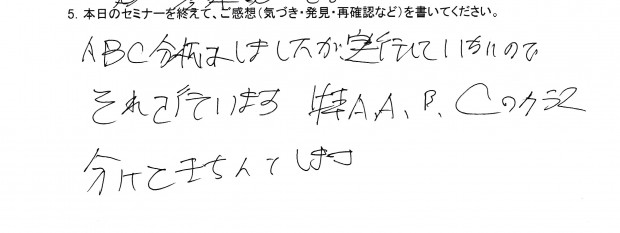 5. 本日のセミナーを終えて、ご感想(気づき・発見・再確認など)を書いてください。
ABC分析はしましたが実行していないので
それを行います 特A、A、B、Cのクラス
分けをきちんとします